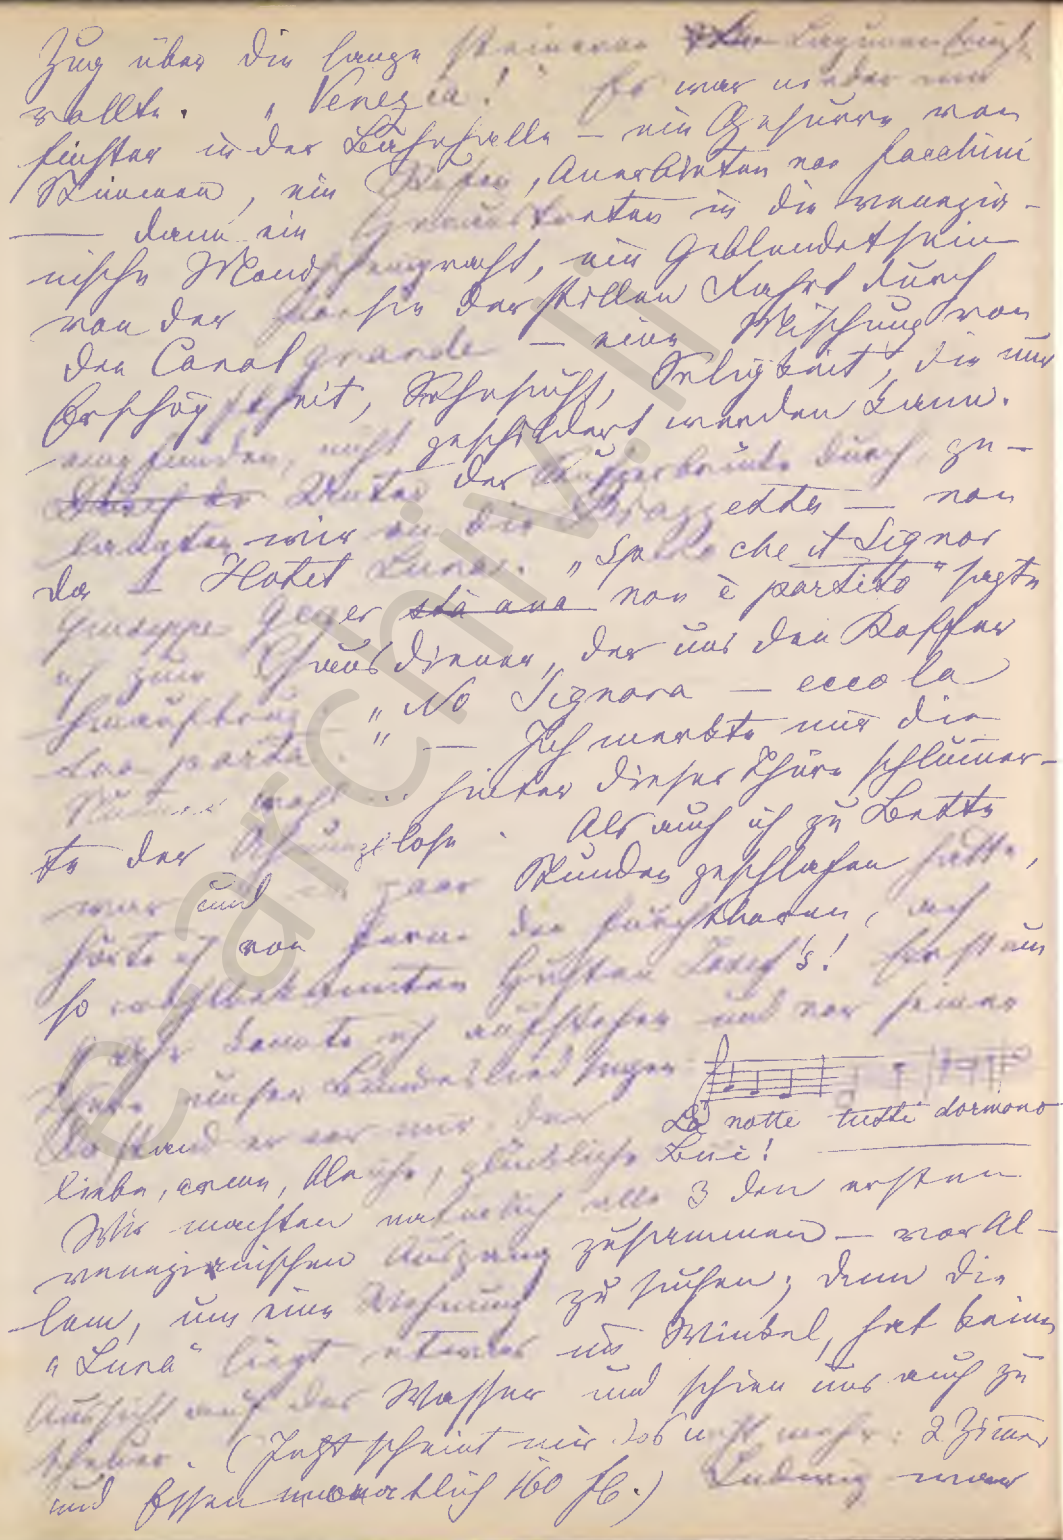 Zug über die lange steinerne Lagunenbrücke
rollte. „Venezia!" Es war wieder nur
finster in der Bahnhalle – ein Gesurre von
Stimmen, ein Rufen, Anerbieten von facchini
— dann ein Heraustreten in die venezia-
nische Mondscheinnacht, ein Geblendetsein
von der Poesie der stillen Fahrt durch
den Canal grande – eine Mischung von
Erschöpftheit, Sehnsucht, Seligkeit, die nur
empfunden, nicht geschildert werden kann.
Durch die Unter der Seufzerbrücke durch ge-
langten wir an die Piazzetta — von
da – Hotel Luna. „Spero che il Signor
Giuseppe Geyer sta ana non è partito" sagte
ich zum Hausdiener, der uns den Koffer
hinauftrug. „No Signora — ecco la
sua porta." — Ich merkte mir die
Nummer wohl ... hinter dieser Thüre schlummer-
te der Ahnungslose. Als auch ich zu Bette
war und ein paar Stunden geschlafen hatte,
hörte ich von ferne den furchtbaren, ach
so wohlbekannten Husten Josef's! Erst um
Uhr konnte ich aufstehen und vor seiner
Thüre unser Bundeslied singen
La notte tutti dormono
Da stand er vor mir der
liebe, arme, bleiche, glückliche Bui! —
Wir machten natürlich alle 3 den ersten
venezianischen Ausgang zusammen – vor Al-
lem, um eine Wohnung zu suchen; denn die
„Luna" liegt etwas im Winkel, hat keine
Aussicht auf das Wasser und schien uns auch zu
theuer. (Jetzt scheint mir das nicht mehr: 2 Zimmer
und Essen monatlich 160 fl.) Ludwig war